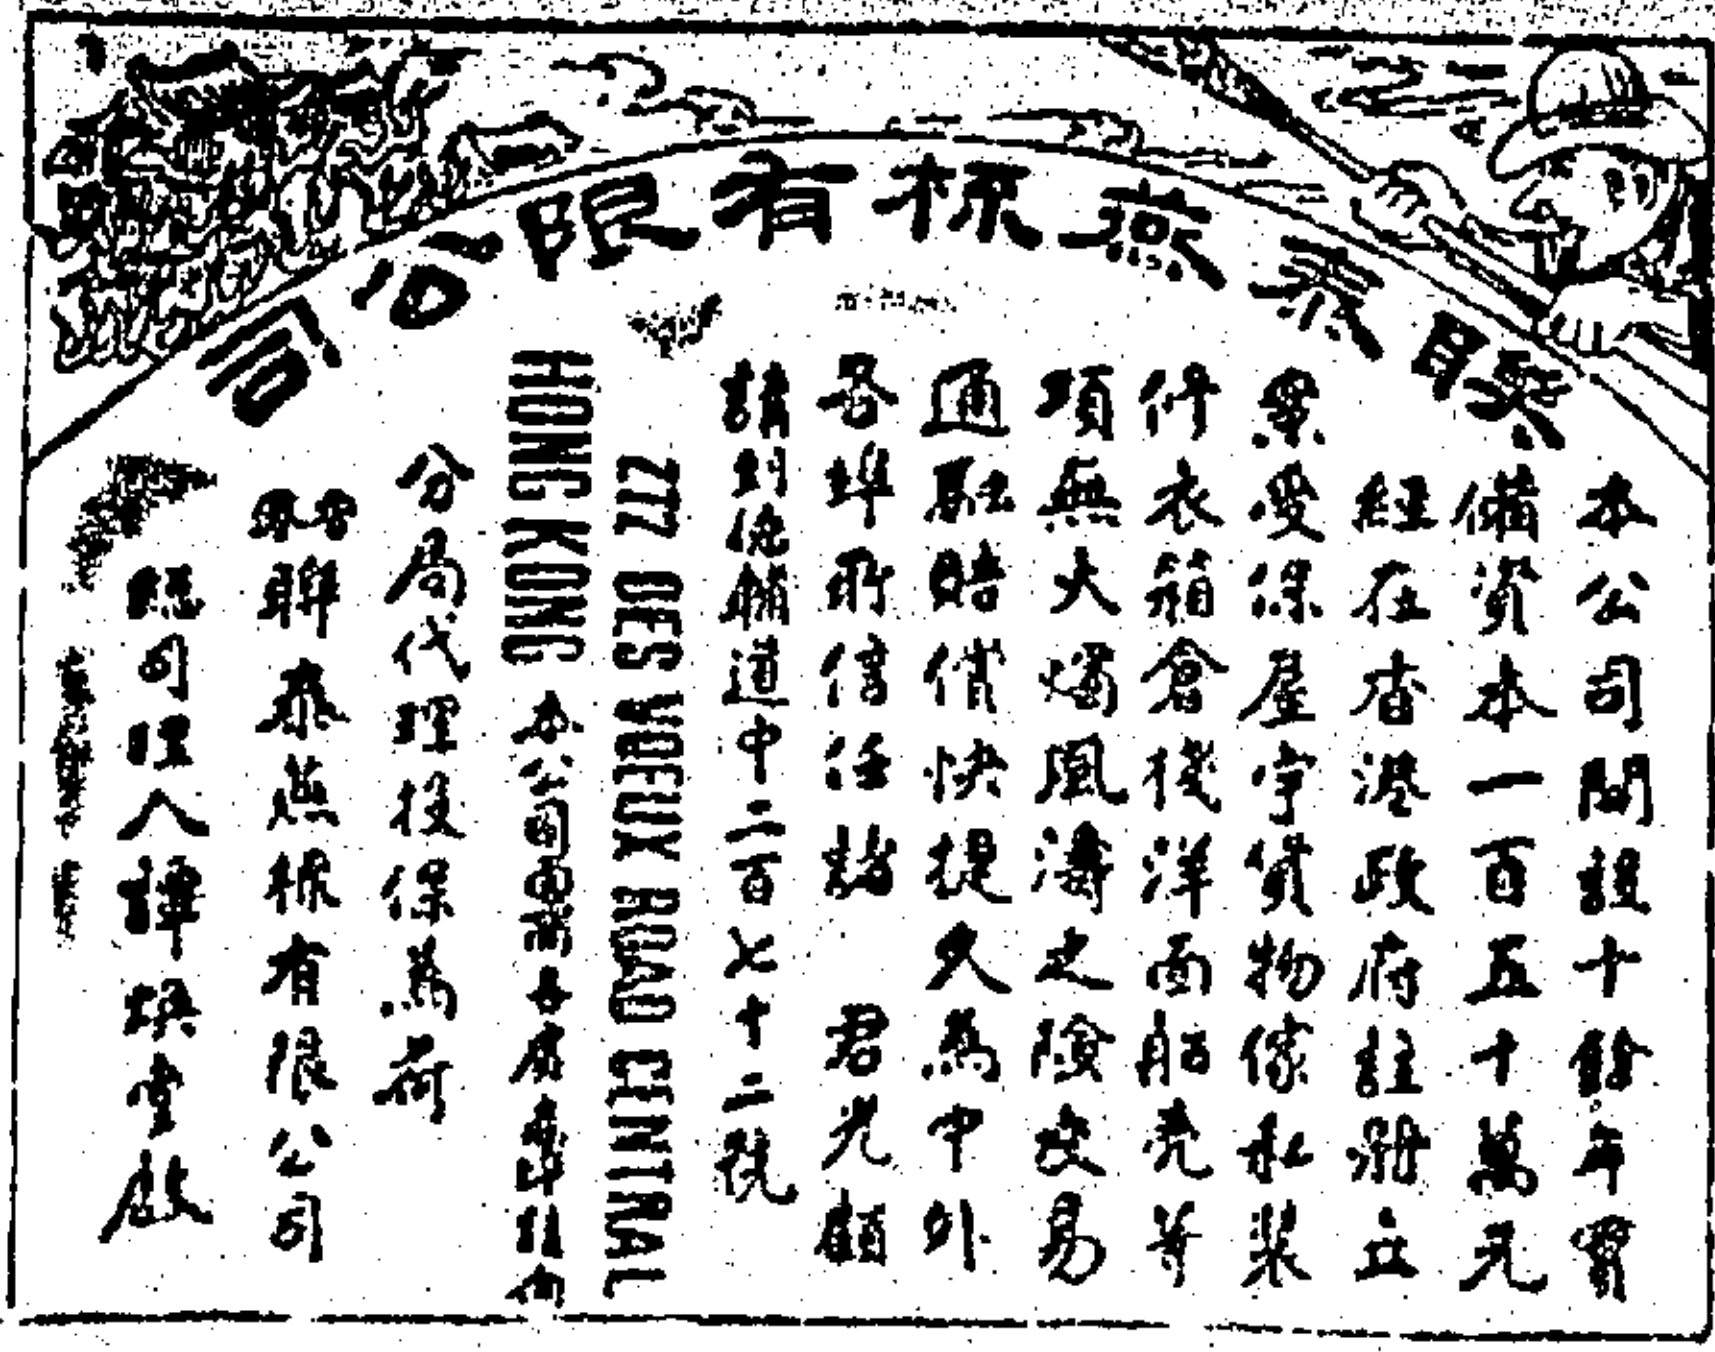 聯泰燕梳有限公司
本公司開設十餘年實
備資本一百五十萬元
經在香港政府註册立
案受保屋宇貨物傢私裝
修衣箱倉棧洋面船壳等
項無火燭風濤之險交易
通融賠償快捷久為中外
各埠所信任諸 君光顧
請到德輔道中二百七十二號
272 DES VOEUX ROAD CENTRAL
HONG KONG 本公司
分局代理投保為荷
香港聯泰燕梳有限公司
總司理人譚煥堂啟